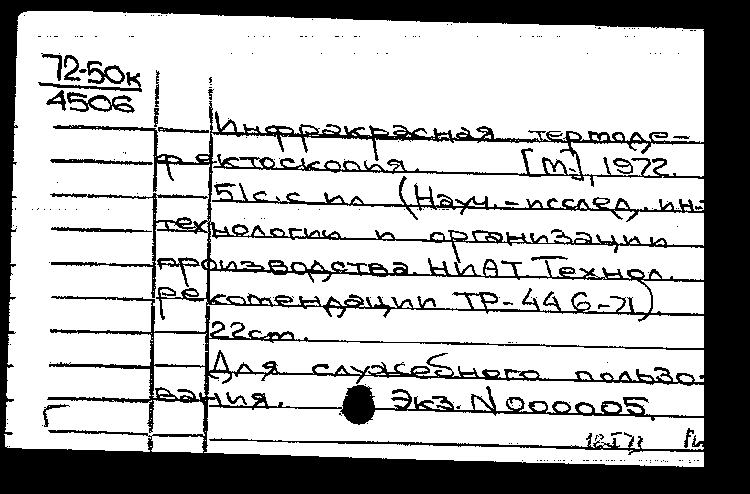 72-50к
4506
Инфракрасная термоде-
фектоскопия. [М.], 1972.
51 с. с ил (Науч.-исслед. ин-
технологии и организации
производства. НИАТ. Технол.
рекомендации ТР-446-71).
22 см.
Для служебного пользо-
вания. Экз. N 000005.
Г